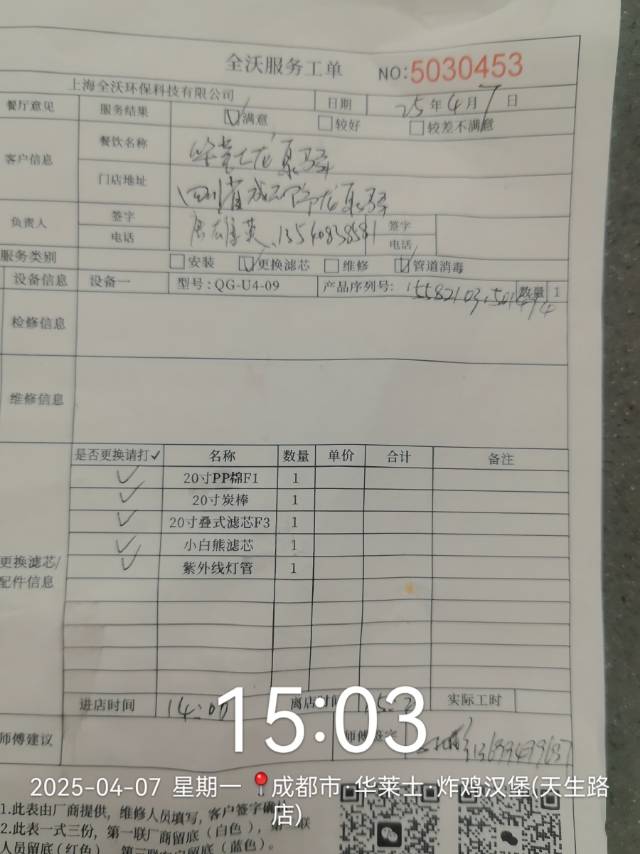 全沃服务工单 NO:5030453
上海全沃环保科技有限公司 日期 25年4月7日
餐厅意见 服务结果 ☑满意 □较好 □较差不满意
客户信息 餐饮名称
门店地址 四川省成都
负责人 签字 签字
电话 电话
服务类别 □安装 ☑更换滤芯 □维修 ☑管道消毒
设备信息 设备一 型号:QG-U4-09 产品序列号: 数量 1
检修信息
维修信息
是否更换请打✓ 名称 数量 单价 合计 备注
✓ 20寸PP棉F1 1
✓ 20寸炭棒 1
✓ 20寸叠式滤芯F3 1
✓ 小白熊滤芯 1
✓ 紫外线灯管 1
更换滤芯/
配件信息
进店时间 14:00 离店时间 实际工时
15:03
师傅建议 师傅签字
2025-04-07 星期一 成都市·华莱士·炸鸡汉堡(天生路
店)
1.此表由厂商提供,维修人员填写,客户签字确
2.此表一式三份,第一联厂商留底(白色),第 联
人员留底(红色),第三联客户留底(蓝色)。